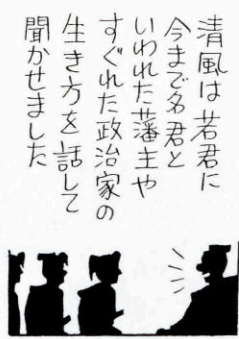 清風は若君に
今まで名君と
いわれた藩主や
すぐれた政治家の
生き方を話して
聞かせました